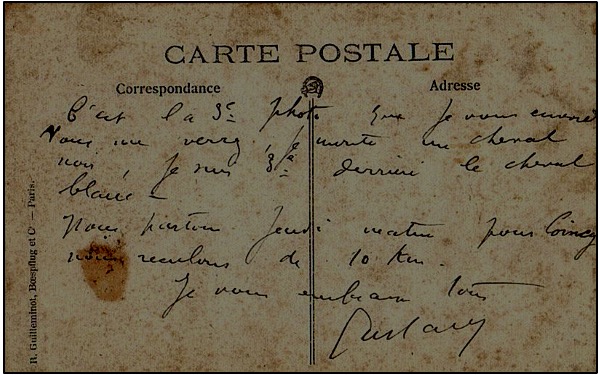 CARTE POSTALE
Correspondance
Adresse
C'est la 3e photo que je vous envoie
Vous me verrez je monte un cheval
noir, je suis 3e derrière le cheval
blanc –
Nous partons jeudi matin pour Coincy
nous reculons de 10 Km.
Je vous embrasse tous
Gustave
R. Guilleminot, Bœspflug et Cie — Paris.